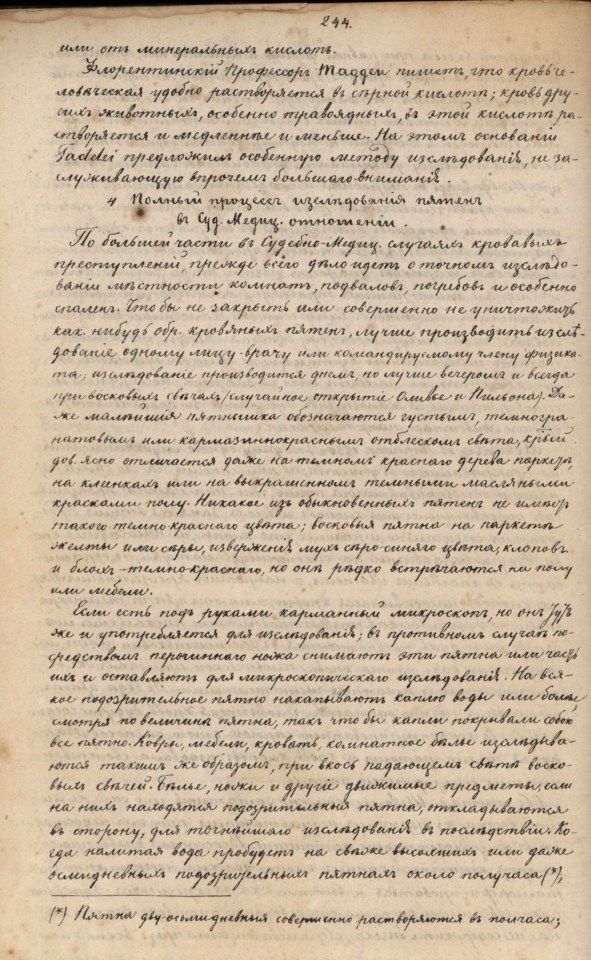 244.
или отъ минеральныхъ кислотъ.
Флорентинскій Профессоръ Таддеи пишетъ, что кровь че-
ловѣческая удобно растворяется въ сѣрной кислотѣ; кровь дру-
гихъ животныхъ, особенно травоядныхъ, въ этой кислотѣ ра-
створяется и медленнѣе и меньше. На этомъ основаніи
Taddei предложилъ особенную методу изслѣдованія, не за-
служивающую впрочемъ большаго вниманія.
4 Полный процессъ изслѣдованія пятенъ
въ Суд. Медиц. отношеніи.
По большей части въ Судебно-Медиц. случаяхъ кровавыхъ
преступленій, прежде всего дѣло идетъ о точномъ изслѣдо-
ваніи мѣстности комнатъ, подваловъ, погребовъ и особенно
спаленъ. Что бы не закрыть или совершенно не уничтожить
как. нибудь обр. кровяныхъ пятенъ, лучше производить изслѣ-
дованіе одному лицу-врачу или командируемому члену физика-
та; изслѣдованіе производится днемъ, но лучше вечеромъ и всегда
при восковыхъ свѣчахъ (случайное открытіе Оливье и Пильона). Да-
же малѣйшія пятнышка обозначаются густымъ, темногра-
натовымъ или кармазиннокраснымъ отблескомъ свѣта, крый
дов. ясно отличается даже на темномъ краснаго дерева паркетѣ,
на клеенкахъ или на выкрашенномъ темными масляными
красками полу. Никакое изъ обыкновенныхъ пятенъ не имѣетъ
такого темно-краснаго цвѣта; восковыя пятна на паркетѣ
желты или сѣры, изверженія мухъ сѣро-синяго цвѣта, клоповъ
и блохъ - темно-краснаго, но онѣ рѣдко встрѣчаются на полу
или мебели.
Если есть подъ руками карманный микроскопъ, но онъ тутъ
же и употребляется для изслѣдованія; въ противномъ случаѣ по-
средствомъ перочиннаго ножа снимаютъ эти пятна или часть
ихъ и оставляютъ для микроскопическаго изслѣдованія. На вся-
кое подозрительное пятно накапываютъ каплю воды или болѣе
смотря по величинѣ пятна, такъ что бы капли покрывали собою
все пятно. Ковры, мебели, кровать, комнатное бѣлье изслѣдыва-
ются такимъ же образомъ, при вкось падающемъ свѣтѣ воско-
выхъ свѣчей. Бѣлье, ножи и другіе движимые предметы, если
на нихъ находятся подозрительныя пятна, откладываются
въ сторону, для точнѣйшаго изслѣдованія въ послѣдствіи. Ко-
гда налитая вода пробудетъ на свѣже высохшихъ или даже
осмидневныхъ подозрительныхъ пятнахъ около получаса (*),
(*) Пятна дву-осьмидневныя совершенно растворяются въ полчаса;